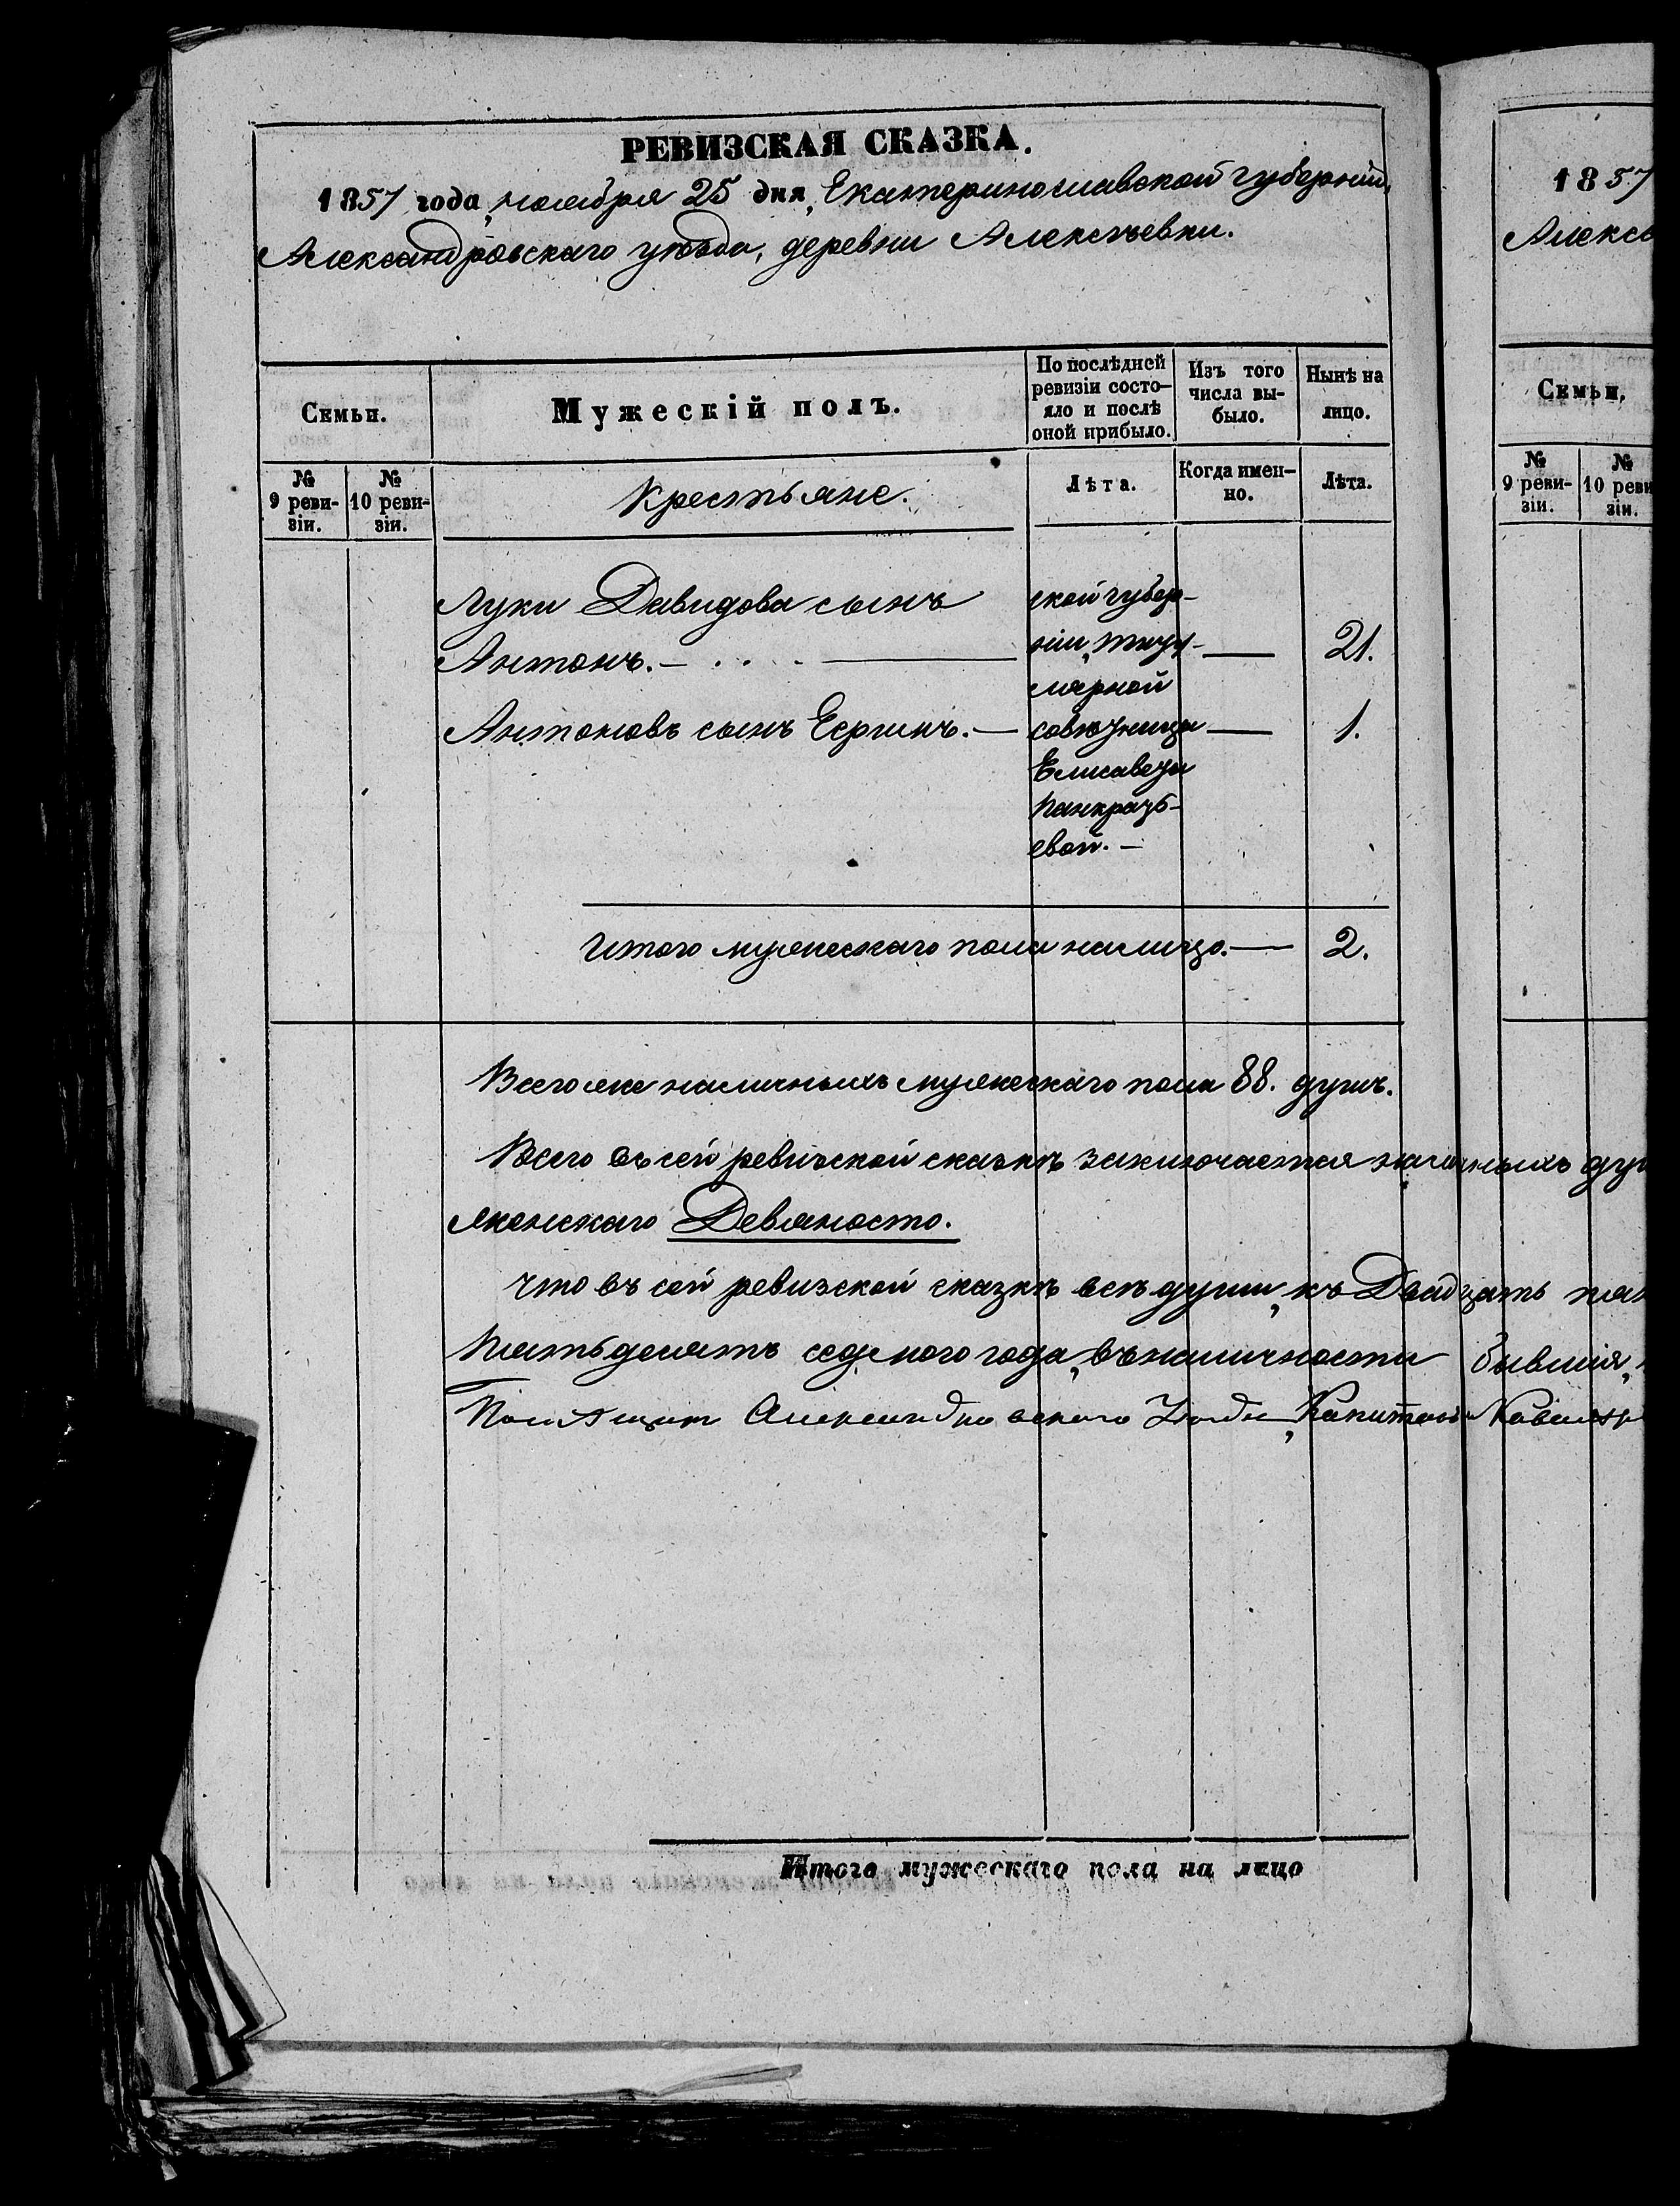 РЕВИЗСКАЯ СКАЗКА.
1857 года, ноября 25 дня, Екатеринославской губерніи,
Александровскаго уѣзда, деревни Алексѣевки.
Семьи.
Мужескій полъ.
По послѣдней ревизіи состо-
яло и послѣ
оной прибыло.
Изъ того
числа вы-
было.
Нынѣ на
лицо.
№
9 реви-
зіи.
№
10 реви-
зіи.
Крестьяне.
Лѣта.
Когда имен-
но.
Лѣта.
Луки Давидова сынъ
Антонъ. — 21.
Антоновъ сынъ Ефимъ. — 1.
ской губер-
ніи, титу-
лярной
совѣтницы
Елисаветы
Панкрать-
евой. —
Итого мужескаго пола налицо. — 2.
Всего же наличныхъ мужескаго пола 88. душъ.
Всего въ сей ревизской сказкѣ заключается наличныхъ душ
женскаго Девяносто.
Что въ сей ревизской сказкѣ всѣ души, къ Двадцать пят
Пятьдесятъ седьмого года, въ наличности бывшія,
Александровскаго Капитанъ
Итого мужескаго пола на лицо
1857
Алексѣ
Семьи,
№
9 реви-
зіи.
№
10 реви
зіи.